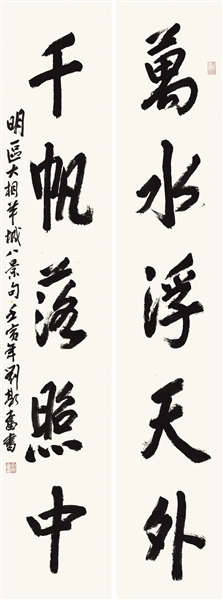 萬水浮天外
千帆落照中
明區大相羊城八景句壬寅年劉斯奮書